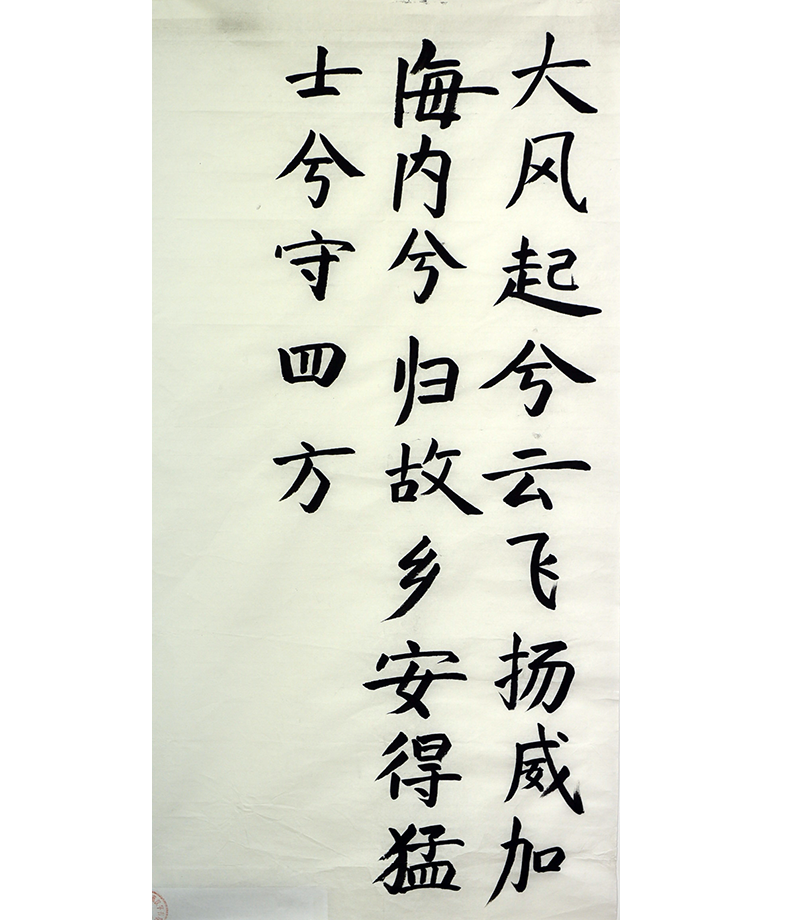 大风起兮云飞扬威加
海内兮归故乡安得猛
士兮守四方